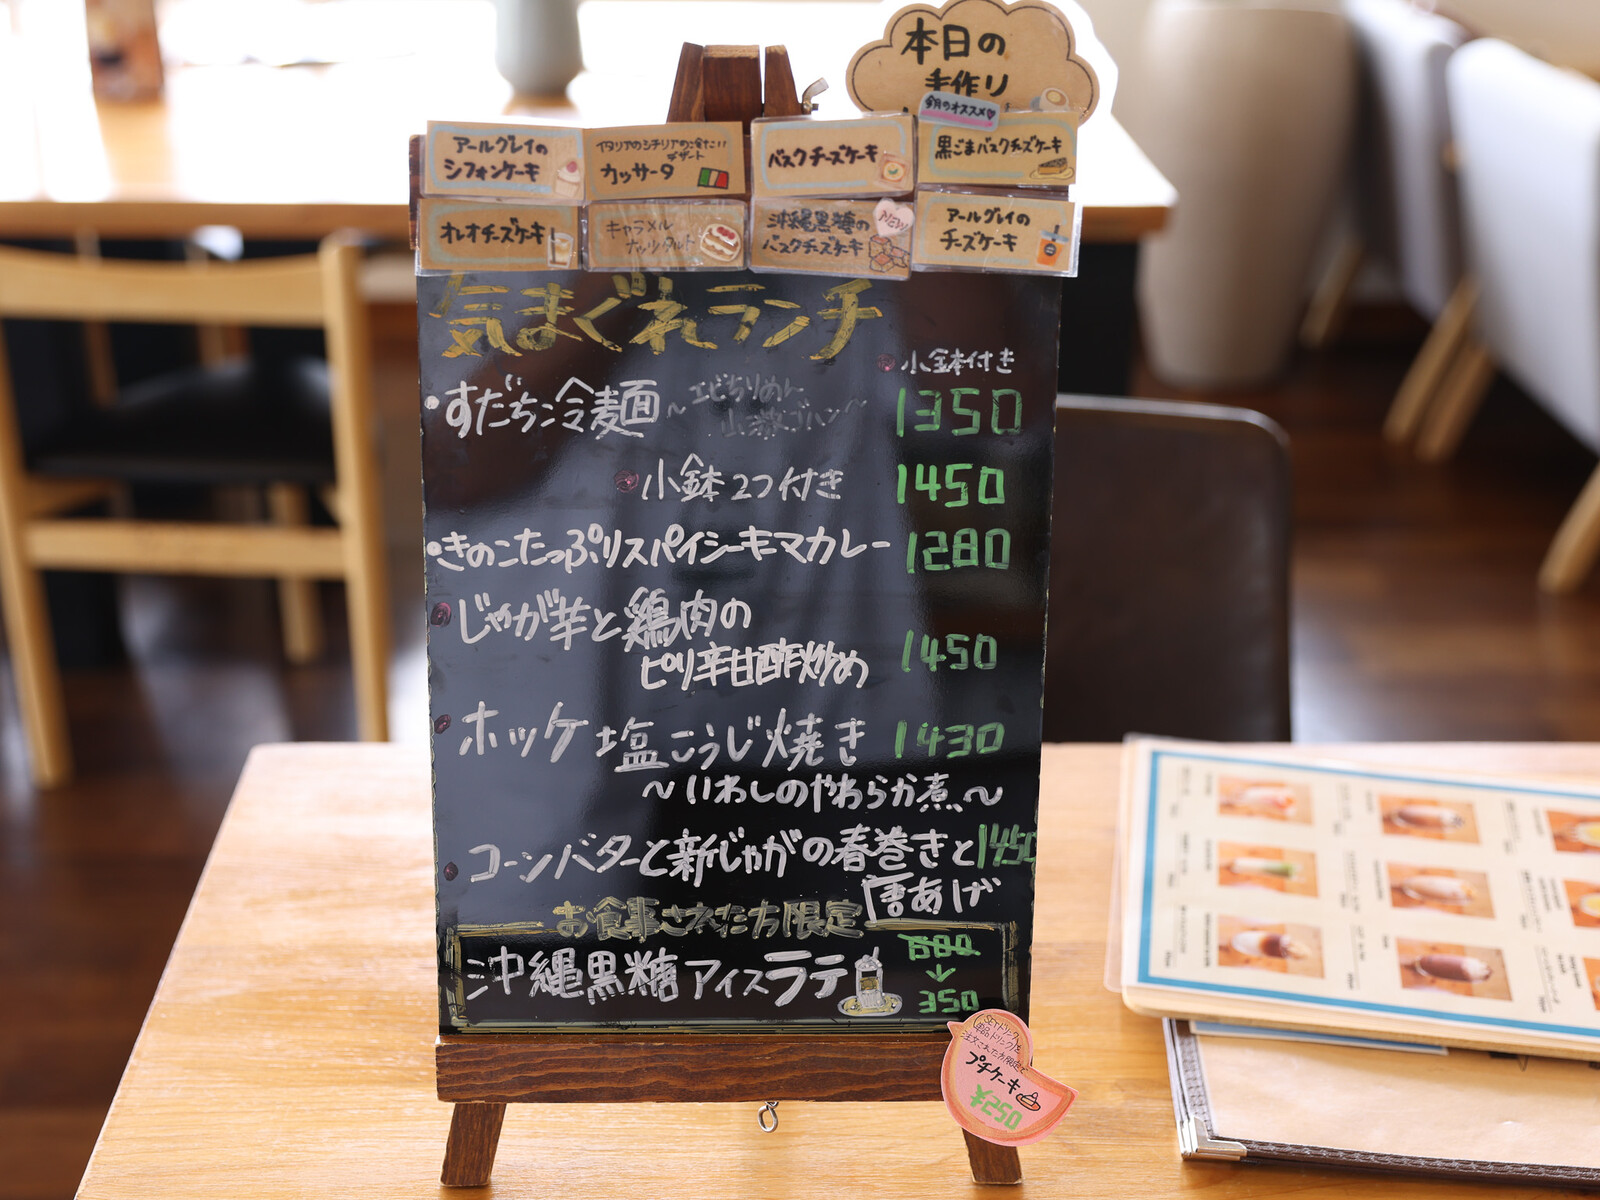 本日の
手作り
今月のオススメ♡
アールグレイの
シフォンケーキ
イタリアのシチリアの冷たい
デザート
カッサータ
バスクチーズケーキ
黒ごまバスクチーズケーキ
オレオチーズケーキ
キャラメル
ナッツタルト
沖縄黒糖の
バスクチーズケーキ
NEW
アールグレイの
チーズケーキ
気まぐれランチ
小鉢付き
・すだち冷麺 〜エビちりめん
山菜ゴハン〜 1350
小鉢2つ付き 1450
・きのこたっぷりスパイシーキーマカレー 1280
じゃが芋と鶏肉の
ピリ辛甘酢炒め 1450
ホッケ塩こうじ焼き 1430
〜いわしのやわらか煮〜
コーンバターと新じゃがの春巻きと 1450
唐あげ
お食事された方限定
沖縄黒糖アイスラテ
↓
350
SETドリンク
単品ドリンクを
注文された方限定で
プチケーキ
¥250